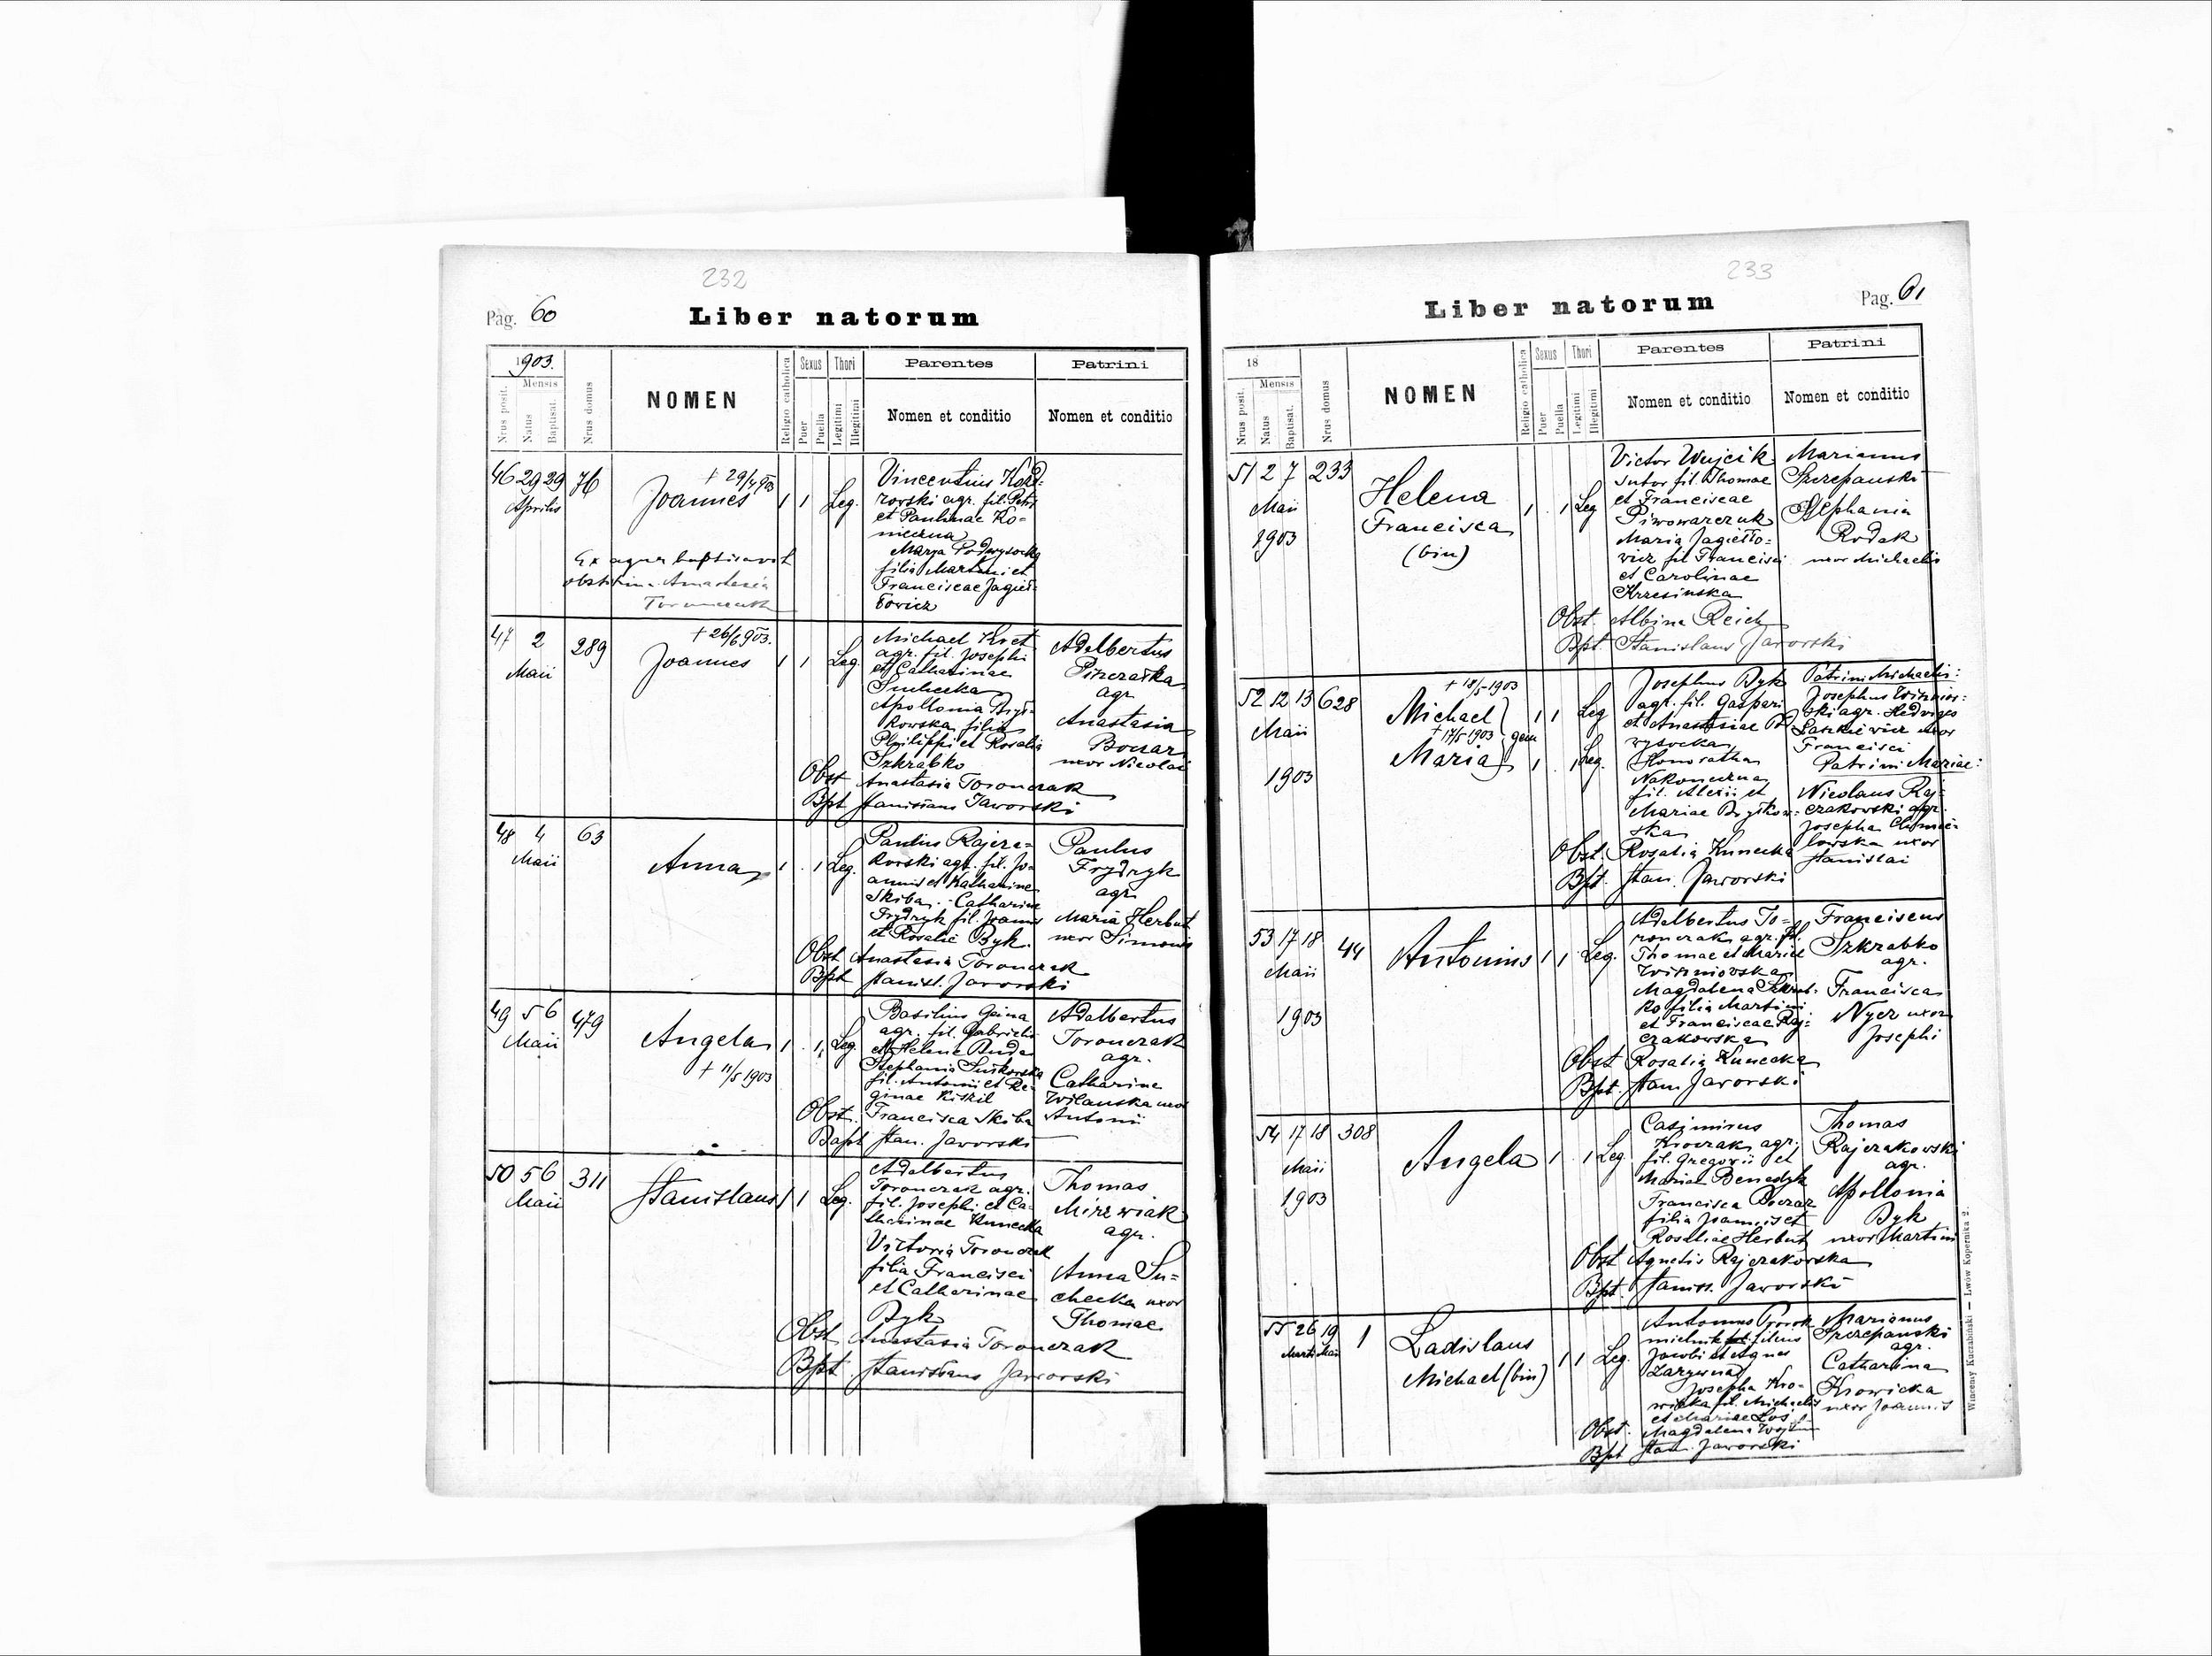 232
Pag. 60
Liber natorum
1903.
Nrus posit.
Mensis
Natus
Baptisat.
Nrus domus
NOMEN
Religio catholica
Sexus
Puer
Puella
Thori
Legitimi
Illegitimi
Parentes
Nomen et conditio
Patrini
Nomen et conditio
46 29 29 76
Aprilis
+ 29/4 903
Joannes
1 1 Leg.
Ex aqua baptisavit
obstetrix Anastasia
Vincentius
rowski agr. fil. Petri
et Paulinae Ko=
nieczna
Marya Podwysocka
filia Martini et
Franciscae Jagieł=
łowicz
47 2 289
Maii
+ 26/6 903.
Joannes
1 1 Leg.
Michael Kret
agr. fil. Josephi
et Catharinae
Suchecka
Apollonia Bryt=
kowska filia
Philippi et Rosalia
Szkrabko
Adelbertus
agr
Anastasia
Boczar
uxor Nicolai
Obst Anastasia Toronczak
Bpt Stanislaus Jaworski
48 4 63
Maii
Anna
1 . 1 Leg.
Paulus Rajcza=
kowski agr. fil. Jo=
annis et Katharine
Skiba. Catharine
Frydryk fil. Joannis
et Rosalie Byk.
Paulus
Frydryk
agr
Maria Herbut
uxor Simonis
Obst Anastasia Toronczak
Bpt Stanisl. Jaworski
49 5 6 479
Maii
Angela
+ 11/5 1903
1 . 1 Leg.
Basilius
agr. fil. Gabrielis
et Helene Buda
Stephania
fil. Antonii et Re=
ginae Kiskil
Adalbertus
Toronczak
agr.
Catharina
Wilanska uxor
Antonii
Obst. Francisca Skiba
Bapt Stan. Jaworski
50 5 6 311
Maii
Stanislaus
1 1 Leg.
Adelbertus
Toronczak agr.
fil. Josephi et Ca=
tharinae Kunecka
Victoria Toronczak
filia Francisci
et Catharinae
Byk
Thomas
Mirzwiak
agr.
Anna Su=
checka uxor
Thomae
Obst Anastasia Toronczak
Bpt. Stanislaus Jaworski
233
Liber natorum
Pag. 61
18
Nrus posit.
Mensis
Natus
Baptisat.
Nrus domus
NOMEN
Religio catholica
Sexus
Puer
Puella
Thori
Legitimi
Illegitimi
Parentes
Nomen et conditio
Patrini
Nomen et conditio
51 2 7 233
Maii
1903
Helena
Francisca
(bin)
1 . 1 Leg
Victor Wujcik
sutor fil. Thomae
et Franciscae
Piwowarczuk
Maria Jagiełło=
wicz fil Francisci
et Carolinae
Krzesinska
Marianus
Szczepanski
Stephania
Rodak
uxor Michaelis
Obst. Albina Reich
Bpt. Stanislaus Jaworski
52 12 13 628
Maii
1903
+ 18/5 1903
Michael
+ 17/5 1903 gem
Maria
1 1 Leg
1 . 1 Leg.
Josephus Byk
agr. fil. Gaspari
et Anastasiae
wysocka
Honoratha
Nakoneczna
fil. Alexii et
Mariae Brytkow=
ska
Patrini Michaelis:
Josephus Wisniow=
ski agr. Hedviges
Laszkiewicz uxor
Francisci
Patrini Mariae:
Nicolaus Raj=
czakowski agr.
Josepha Chmie=
lowska uxor
Stanislai
Obst. Rosalia Kunecka
Bpt. Stan. Jaworski
53 17 18 44
Maii
1903
Antonius
1 1 Leg.
Adelbertus To=
ronczak agr. fil.
Thomae et Mariae
Wiszniowska
Magdalena Szkrab=
ko filia Martini
et Franciscae Raj=
czakowska
Franciscus
Szkrabko
agr.
Francisca
Nycz uxor
Josephi
Obst Rosalia Kunecka
Bpt. Stan Jaworski
54 17 18 308
Maii
1903
Angela
1 . 1 Leg.
Casimirus
agr.
fil. Gregorii et
Maria Benedyk
Francisca Boczar
filia Joannis et
Rosaliae Herbut
Thomas
Rajczakowski
agr.
Apollonia
Byk
uxor Martini
Obst Agnetis Rajczakowska
Bpt. Stanisl. Jaworski
55 26 19 1
Martii Maii
Ladislaus
Michael (bin)
1 1 Leg.
Antonius
mielnik filius
Jacobi et Agnes
Zarywna
Josepha Kro=
wicka fil. Michaelis
et Mariae Łoś
Marianus
Szczepanski
agr.
Catharina
Krowicka
uxor Joannis
Obst. Magdalena
Bpt Stan. Jaworski
Wincenty Kuczabiński — Lwów Kopernika 2.